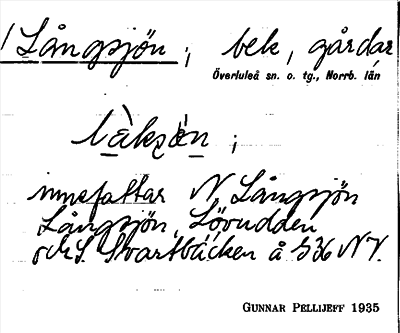 Långsjön, bek, gårdar
Överluleå sn. o. tg., Norrb. län
innefattar N Långsjön
Långsjön, Lövudden
och S. Svartbäcken å S36 NV.
GUNNAR PELLIJEFF 1935